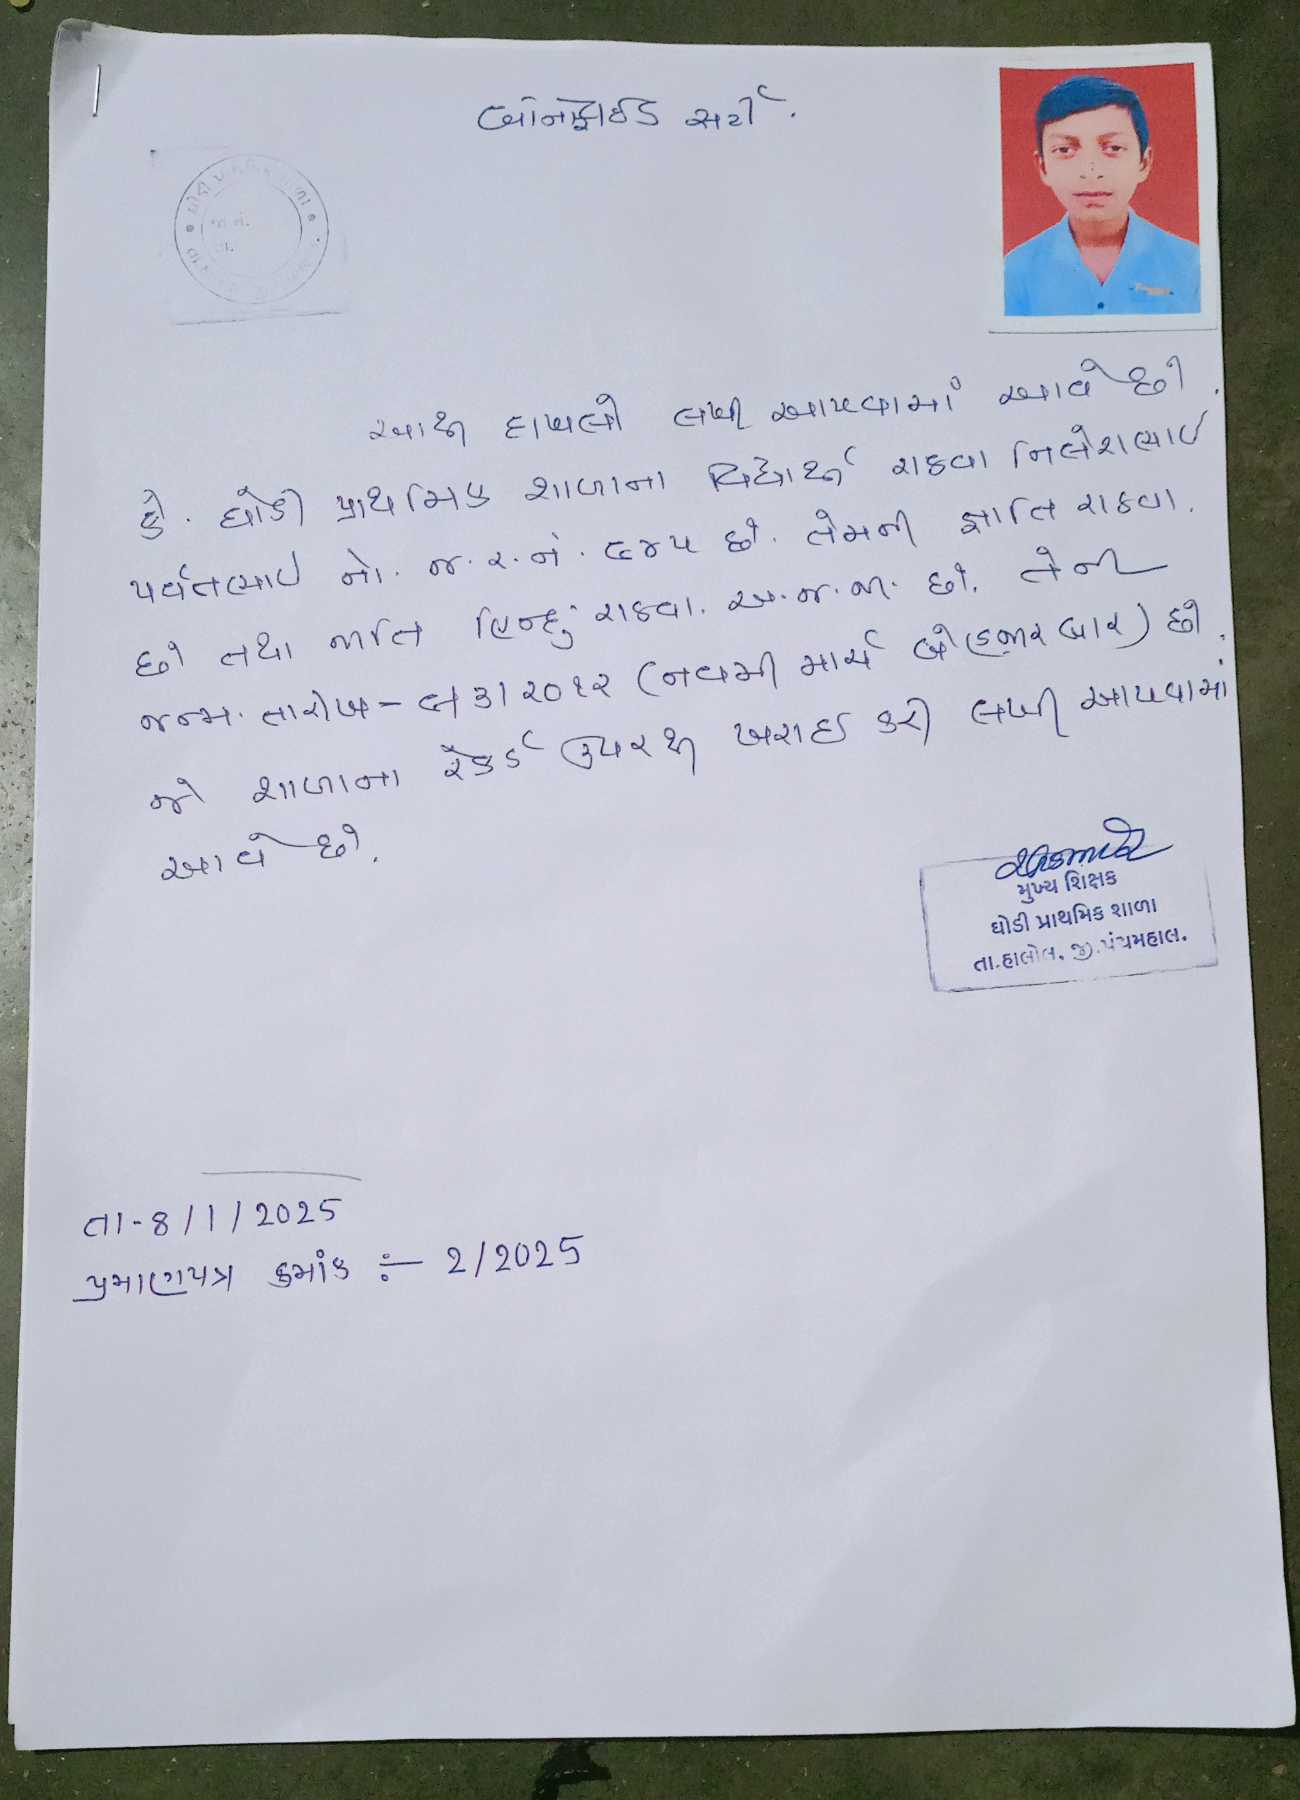 બોનાફાઈડ સર્ટી.
આથી દાખલો લખી આપવામાં આવે છે.
કે. ઘોડી પ્રાથમિક શાળાના વિદ્યાર્થી રાઠવા નિલેશભાઈ
પર્વતભાઈ નો. જ.ર.નં. ૮૪૫ છે. તેમની જ્ઞાતિ રાઠવા.
છે તથા જાતિ હિન્દુ રાઠવા. અ.જ.જા. છે. તેની
જન્મ. તારીખ - ૯/૩/૨૦૧૨ (નવમી માર્ચ બેહજાર બાર) છે.
જે શાળાના રેકર્ડ ઉપરથી ખરાઈ કરી લખી આપવામાં
આવે છે.
મુખ્ય શિક્ષક
ઘોડી પ્રાથમિક શાળા
તા.હાલોલ. જી.પંચમહાલ.
તા-8/1/2025
પ્રમાણપત્ર ક્રમાંક :- 2/2025